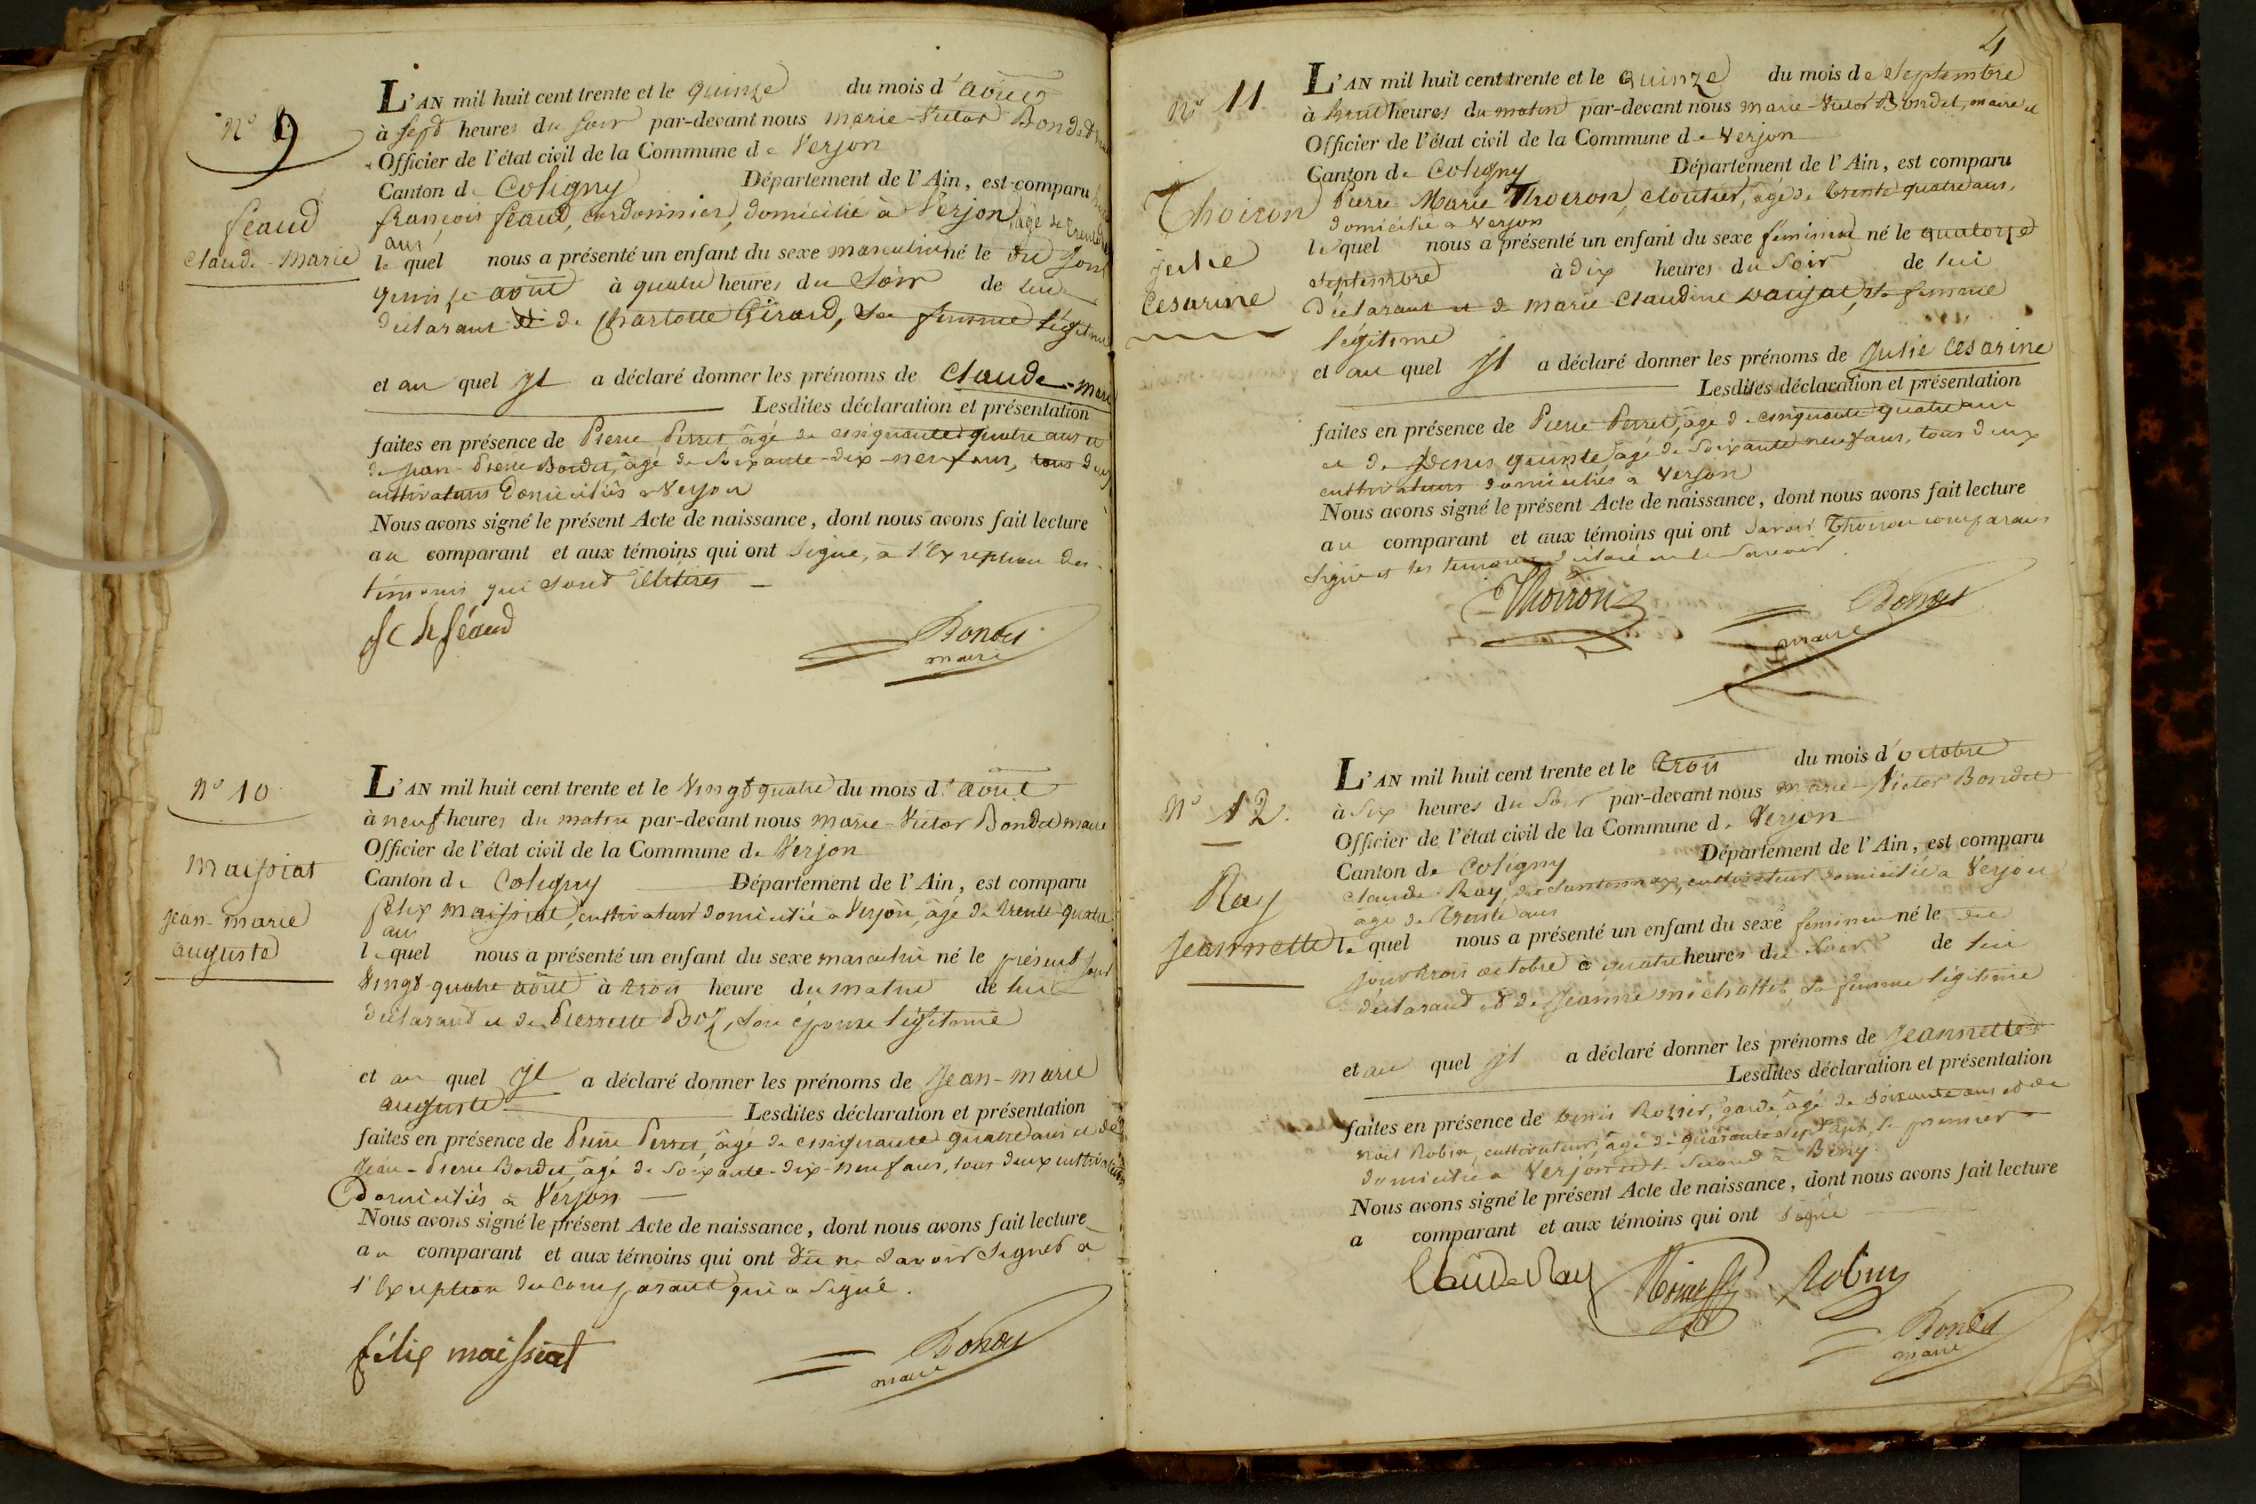 N° 9
feaud
Claude-Marie
L'AN mil huit cent trente et le quinze du mois d'août
à sept heures du soir par-devant nous marie-Victor Bondet
Officier de l'état civil de la Commune de Verjon
Canton de Coligny Département de l'Ain, est comparu
françois feaud, cordonnier, domicilié à Verjon, âgé de trente
ans
lequel nous a présenté un enfant du sexe masculin né le dit jour
quinze août à quatre heures du soir de lui
déclarant et de Charlotte Girard, sa femme légitime
et au quel Il a déclaré donner les prénoms de Claude-Marie
Lesdites déclaration et présentation
faites en présence de Pierre Perret âgé de cinquante quatre ans et
de jean-Pierre Bordet, âgé de soixante-dix-neuf ans, tous deux
cultivateurs domiciliés à Verjon
Nous avons signé le présent Acte de naissance, dont nous avons fait lecture
au comparant et aux témoins qui ont signé, à l'exception des
témoins qui sont illitérés
feaud
Bondet
maire
N° 10
Maissiat
jean-marie
auguste
L'AN mil huit cent trente et le Vingt quatre du mois d'août
à neuf heures du matin par-devant nous marie-Victor Bondet maire
Officier de l'état civil de la Commune de Verjon
Canton de Coligny Département de l'Ain, est comparu
félix Maissiat, cultivateur domicilié à Verjon, âgé de trente-quatre
ans
lequel nous a présenté un enfant du sexe masculin né le présent jour
Vingt-quatre août à trois heure du matin de lui
déclarant et de Pierrette Boz, son épouse légitime
et au quel Il a déclaré donner les prénoms de Jean-marie
auguste Lesdites déclaration et présentation
faites en présence de Pierre Perret, âgé de cinquante quatre ans et de
Jean-Pierre Bordet âgé de soixante-dix-neuf ans, tous deux cultivateurs
Domiciliés à Verjon
Nous avons signé le présent Acte de naissance, dont nous avons fait lecture
au comparant et aux témoins qui ont dit ne savoir signer à
l'exception du comparant qui a signé.
félix maissiat
Bondet
maire
4
N° 11
Thoiron
julie
Césarine
L'AN mil huit cent trente et le Quinze du mois de septembre
à huit heures du matin par-devant nous marie-Victor Bondet, maire et
Officier de l'état civil de la Commune de Verjon
Canton de Coligny Département de l'Ain, est comparu
Pierre Marie Thoiron, cloutier, âgé de trente quatre ans,
domicilié à Verjon
lequel nous a présenté un enfant du sexe féminin né le quatorze
septembre à dix heures du soir de lui
déclarant et de marie Claudine Daujat, sa femme
légitime
et au quel Il a déclaré donner les prénoms de Julie Césarine
Lesdites déclaration et présentation
faites en présence de Pierre Perret, âgé de cinquante quatre ans
et de Denis quinte âgé de soixante neuf ans, tous deux
cultivateurs domiciliés à Verjon
Nous avons signé le présent Acte de naissance, dont nous avons fait lecture
au comparant et aux témoins qui ont savoir Thoiron comparant
signé et les témoins déclaré ne le savoir.
Thoiron
Bondet
maire
N° 12.
Ray
Jeannette
L'AN mil huit cent trente et le trois du mois d'octobre
à six heures du soir par-devant nous marie-Victor Bondet
Officier de l'état civil de la Commune de Verjon
Canton de Coligny Département de l'Ain, est comparu
Claude Ray, cultivateur domicilié à Verjon
âgé de trente ans
lequel nous a présenté un enfant du sexe féminin né le dit
jour trois octobre à quatre heures du soir de lui
déclarant et de Jeanne michollet, sa femme légitime
et au quel Il a déclaré donner les prénoms de Jeannette
Lesdites déclaration et présentation
faites en présence de Denis Rozier, garde, âgé de soixante ans et de
Noël Robin, cultivateur, âgé de quarante sept ans, le premier
domicilié à Verjon et le second à Beny.
Nous avons signé le présent Acte de naissance, dont nous avons fait lecture
a comparant et aux témoins qui ont signé
Claude Ray Robin
Bondet
maire